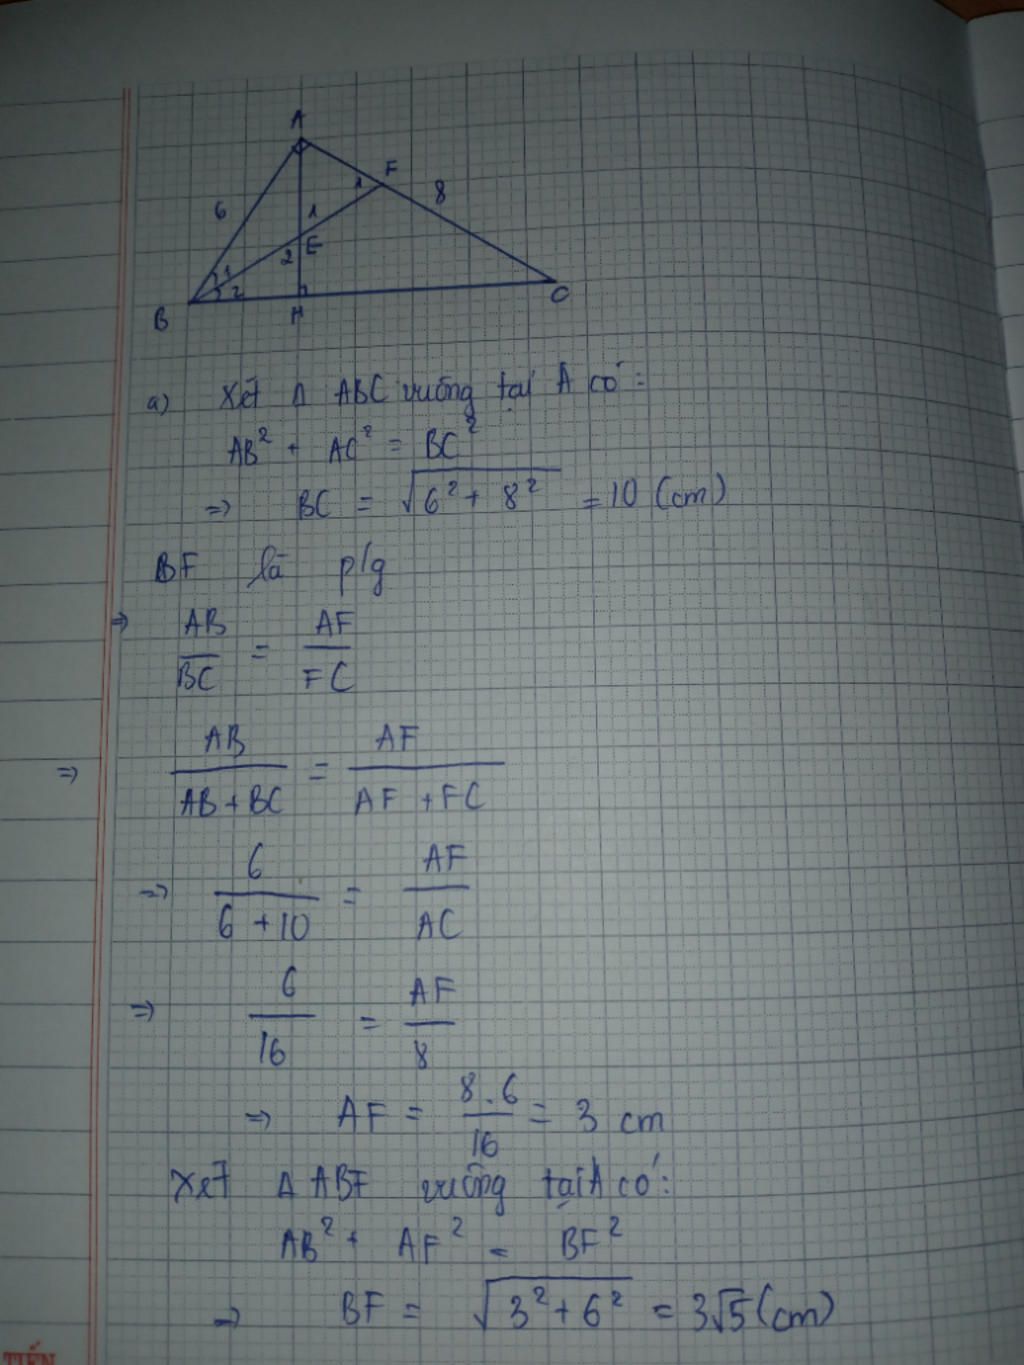 A
F
6
1
8
1
E
2
1
2
B
H
C
a) Xét Δ ABC vuông tại A có:
AB² + AC² = BC²
=> BC = √6² + 8² = 10 (cm)
BF là p/g
=> AB/BC = AF/FC
=> AB/(AB+BC) = AF/(AF+FC)
=> 6/(6+10) = AF/AC
=> 6/16 = AF/8
=> AF = 8.6/16 = 3 cm
Xét Δ ABF vuông tại A có:
AB² + AF² = BF²
=> BF = √3² + 6² = 3√5 (cm)
TIẾN